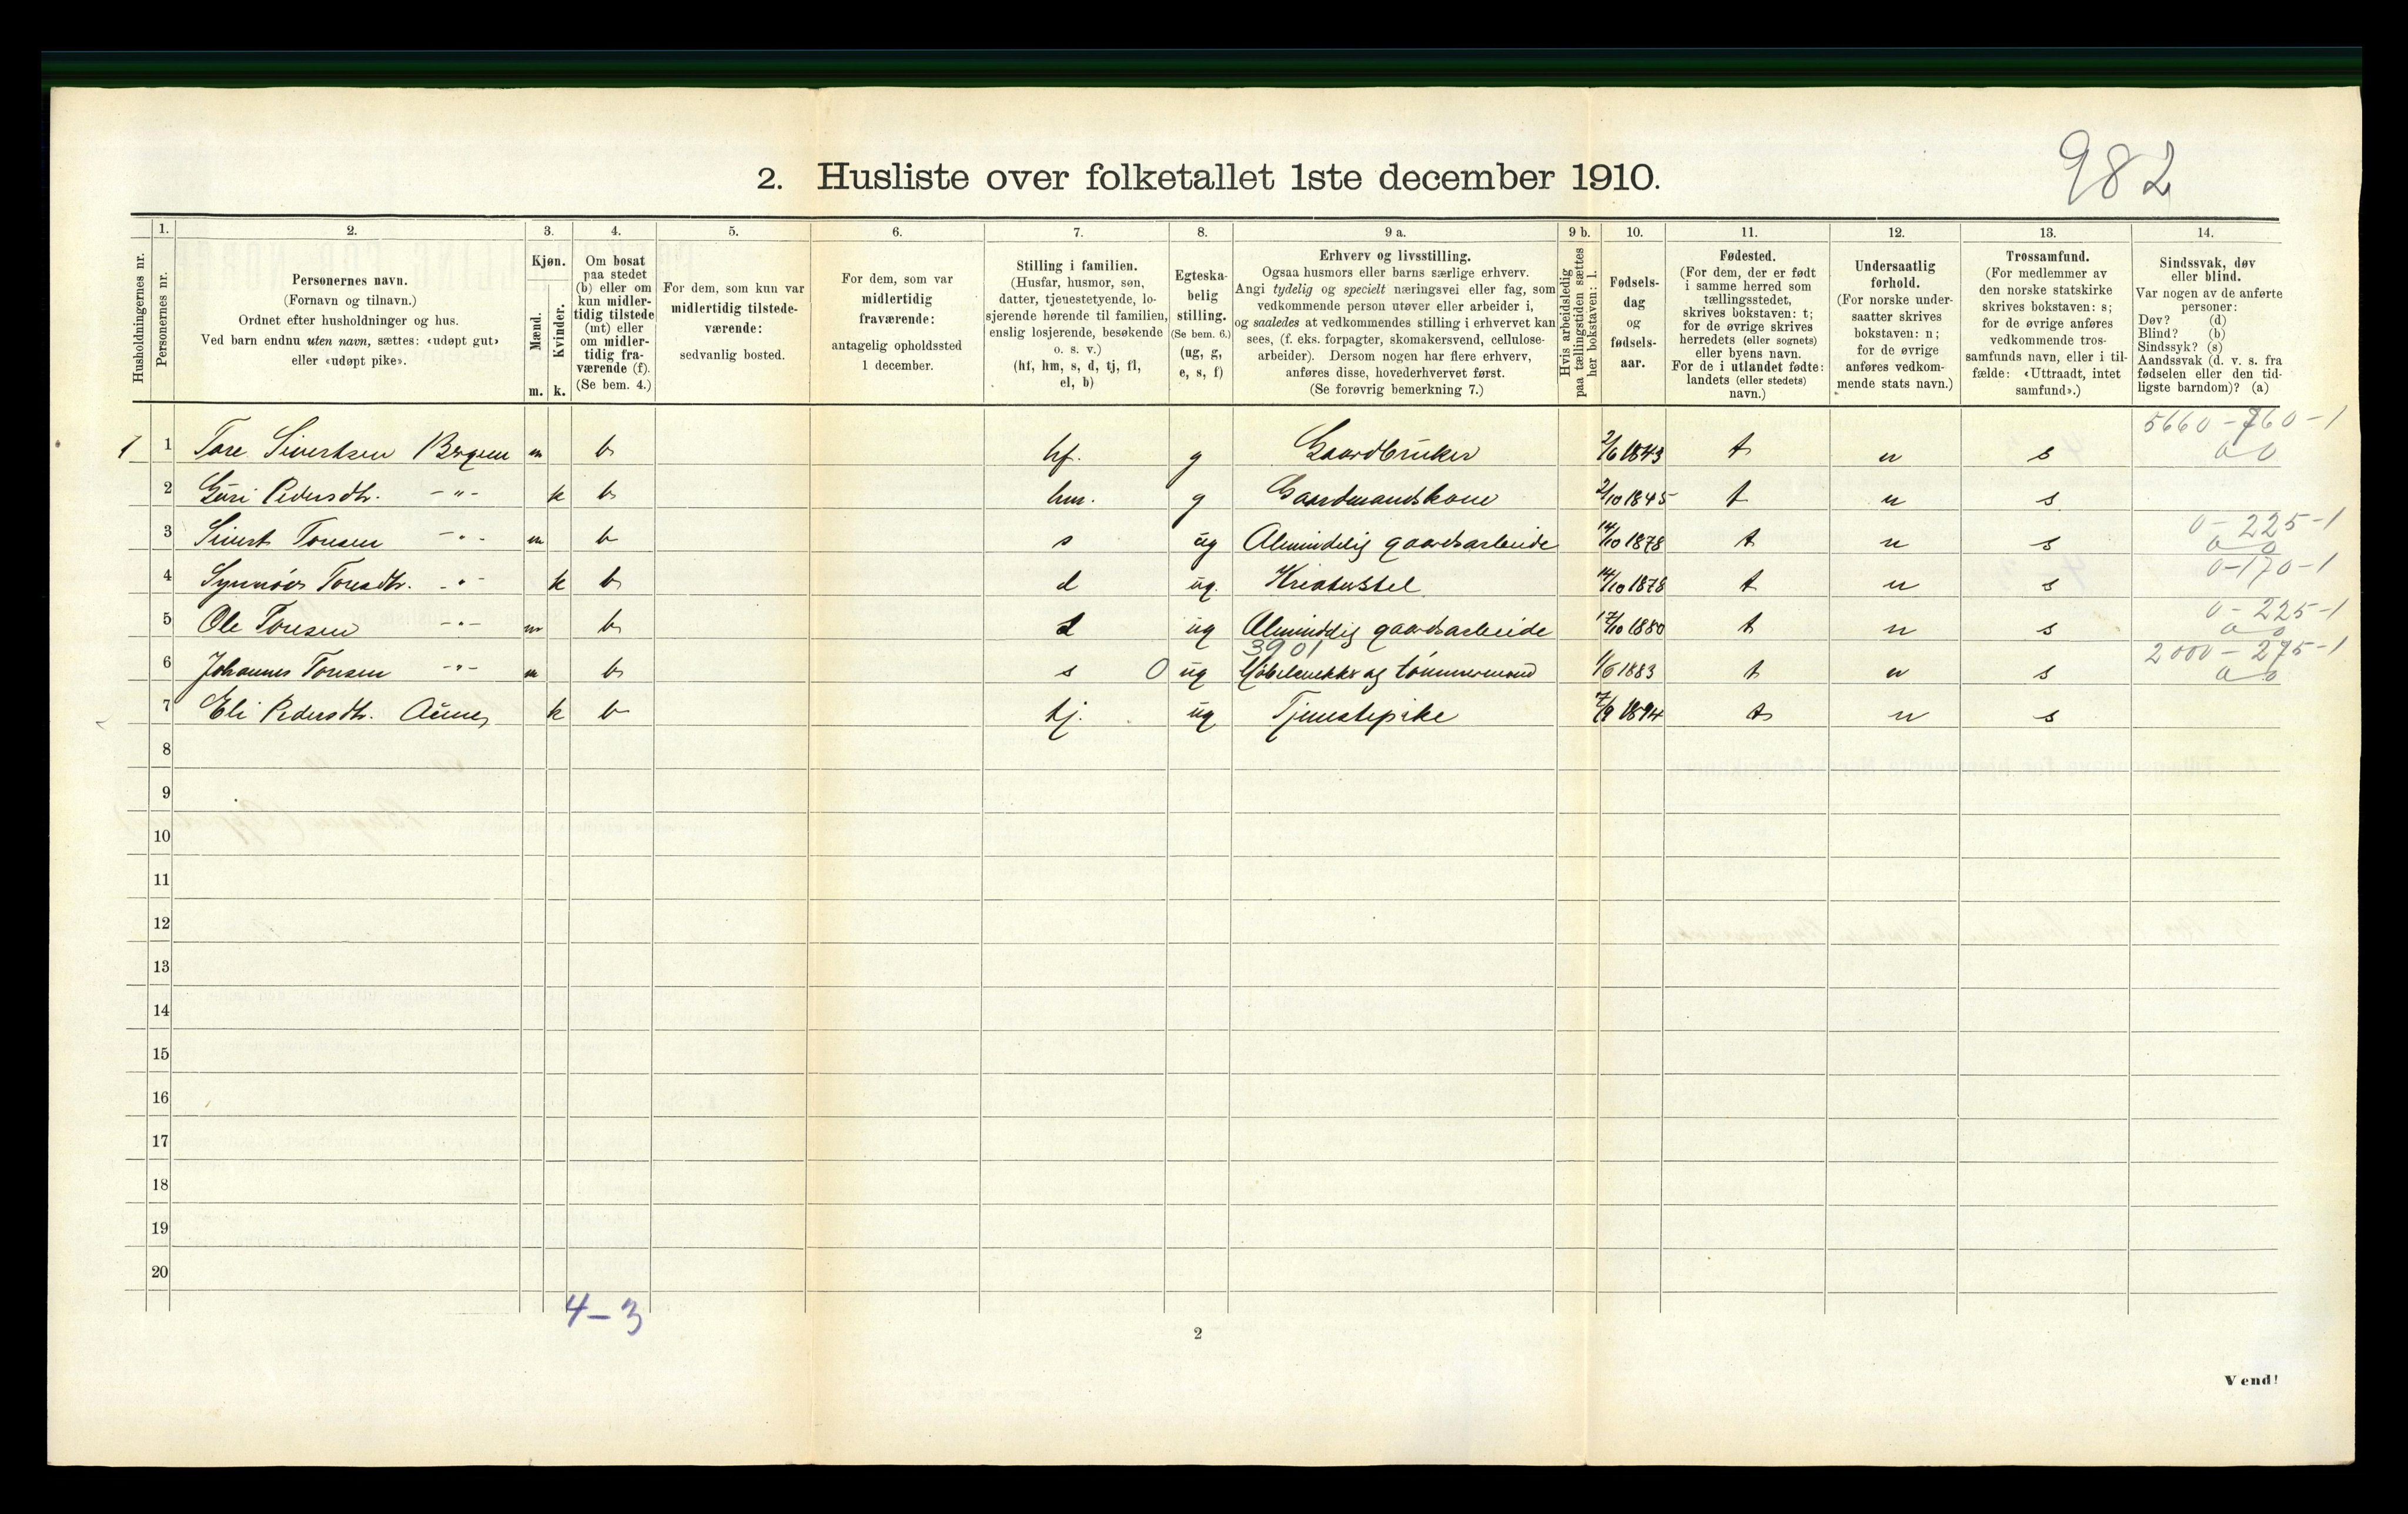 982
2. Husliste over folketallet 1ste december 1910.
Husholdningernes nr.
1.
Personernes nr.
2.
Personernes navn.
(Fornavn og tilnavn.)
Ordnet efter husholdninger og hus.
Ved barn endnu uten navn, sættes: «udøpt gut»
eller «udøpt pike».
3.
Kjøn.
Mænd.
Kvinder.
m. k.
4.
Om bosat
paa stedet
(b) eller om
kun midler-
tidig tilstede
(mt) eller
om midler-
tidig fra-
værende (f).
(Se bem. 4.)
5.
For dem, som kun var
midlertidig tilstede-
værende:
sedvanlig bosted.
6.
For dem, som var
midlertidig
fraværende:
antagelig opholdssted
1 december.
7.
Stilling i familien.
(Husfar, husmor, søn,
datter, tjenestetyende, lo-
sjerende hørende til familien,
enslig losjerende, besøkende
o. s. v.)
(hf, hm, s, d, tj, fl,
el, b)
8.
Egteska-
belig
stilling.
(Se bem. 6.)
(ug, g,
e, s, f)
9 a.
Erhverv og livsstilling.
Ogsaa husmors eller barns særlige erhverv.
Angi tydelig og specielt næringsvei eller fag, som
vedkommende person utøver eller arbeider i,
og saaledes at vedkommendes stilling i erhvervet kan
sees, (f. eks. forpagter, skomakersvend, cellulose-
arbeider). Dersom nogen har flere erhverv,
anføres disse, hovederhvervet først.
(Se forøvrig bemerkning 7.)
9 b.
Hvis arbeidsledig
paa tællingstiden sættes
her bokstaven: l.
10.
Fødsels-
dag
og
fødsels-
aar.
11.
Fødested.
(For dem, der er født
i samme herred som
tællingsstedet,
skrives bokstaven: t;
for de øvrige skrives
herredets (eller sognets)
eller byens navn.
For de i utlandet fødte:
landets (eller stedets)
navn.)
12.
Undersaatlig
forhold.
(For norske under-
saatter skrives
bokstaven: n;
for de øvrige
anføres vedkom-
mende stats navn.)
13.
Trossamfund.
(For medlemmer av
den norske statskirke
skrives bokstaven: s;
for de øvrige anføres
vedkommende tros-
samfunds navn, eller i til-
fælde: «Uttraadt, intet
samfund».)
14.
Sindssvak, døv
eller blind.
Var nogen av de anførte
personer:
Døv? (d)
Blind? (b)
Sindssyk? (s)
Aandssvak (d. v. s. fra
fødselen eller den tid-
ligste barndom)? (a)
5660-760-1
1 1 Tore Sivertsen Bergem m b hf. g Gaardbruker 2/6 1843 t n s 0 0
2 Guri Pedersdtr. -"- k b hm. g Gaardmandskone 2/10 1845 t n s
0-225-1
3 Sivert Toresen -"- m b s ug Almindelig gaardsarbeide 14/10 1878 t n s 0 0
0-170-1
4 Synnøve Toresdtr. -"- k b d ug. Kreaturstel 14/10 1878 t n s
0-225-1
5 Ole Toresen -"- m b ug Almindelig gaardsarbeide 17/10 1880 t n s 0 0
3901 2000-275-1
6 Johannes Toresen -"- m b s 0 ug Møbelsnekker og tømmermand 1/6 1883 t n s 0 0
7 Eli Pedersdtr. Aune k b tj. ug Tjenestepike 7/9 1894 t n s
8
9
10
11
12
13
14
15
16
17
18
19
20
4-3
2
Vend!